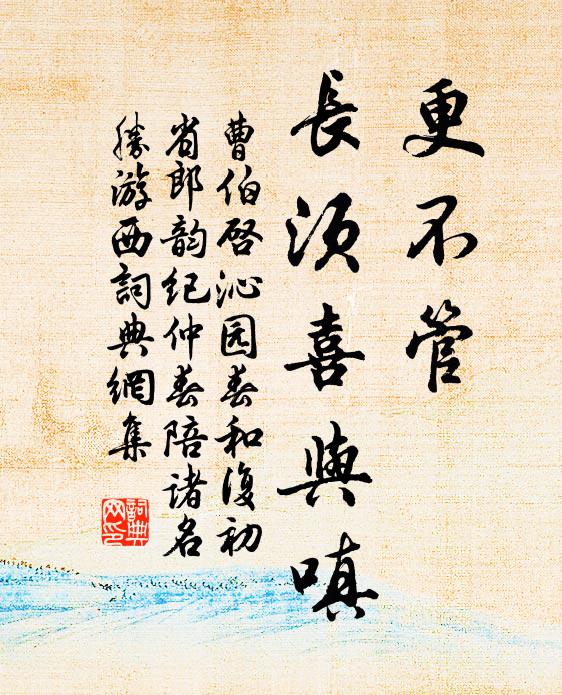 更不管
長須喜與嗔
曹伯啓沁园春和復初
省郎韵纪仲春陪诸名
勝游西詞典網集
詞典
网印